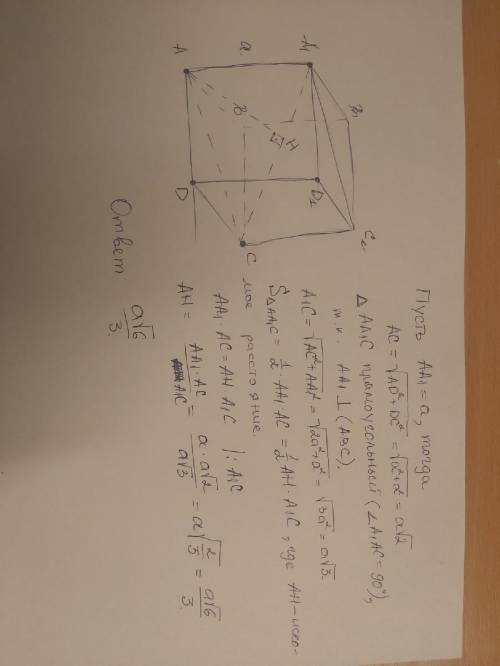 A
a
A₁
B
B₁
H
D
D₁
C
C₁
Пусть AA₁ = a, тогда
AC = √AD² + DC² = √a² + a² = a√2
△ AA₁C прямоугольный (∠A₁AC = 90°),
т.к. AA₁ ⊥ (ABC).
A₁C = √AC² + AA₁² = √2a² + a² = √3a² = a√3
S△AA₁C = 1/2 · AA₁ · AC = 1/2 AH · A₁C, где AH – иско-
мое расстояние.
AA₁ · AC = AH · A₁C |: A₁C
AH = AA₁ · AC / A₁C = a · a√2 / a√3 = a√2/3 = a√6 / 3.
Ответ: a√6 / 3.